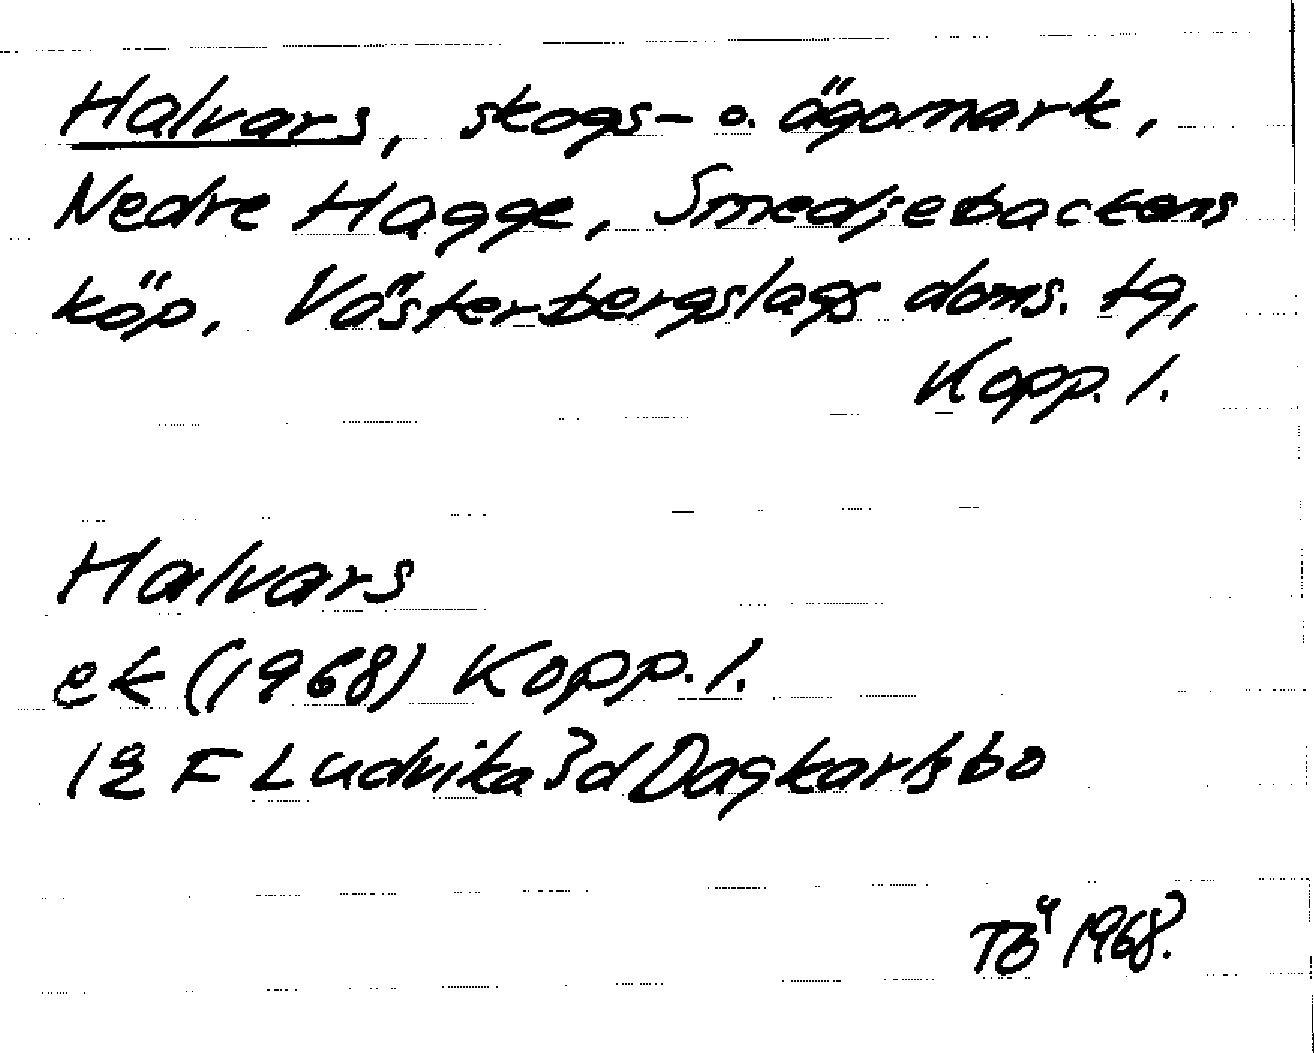 Halvars, skogs- o. ägomark,
Nedre Hagge, Smedjebackens
köp. Västerbergslags doms. tg,
Kopp. l.
Halvars
ek (1968) Kopp. l.
12 F Ludvika 3d Dagkarlsbo
TÖ 1968.